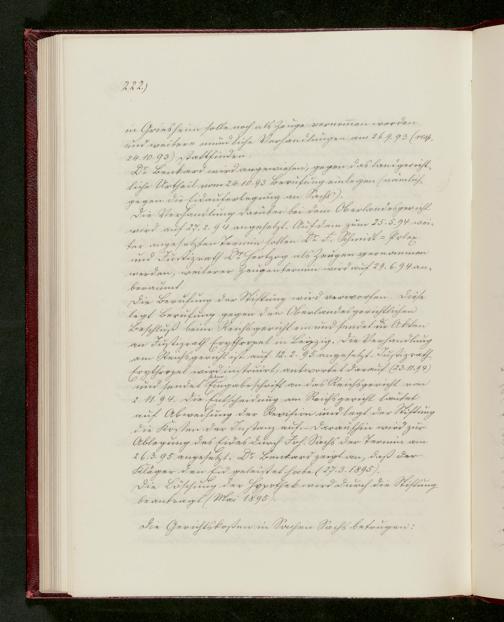 222.)
in Griesheim solle noch als Zeuge vernommen werden
und weitere mündliche Verhandlungen am 26.9.93 (resp.
24.10.93) stattfinden.
Dr. Benkard wird angewiesen, gegen das landgericht-
liche Urtheil vom 24.10.93 Berufung einlegen (nämlich
gegen die Eidauferlegung an Sachs).
Die Verhandlung darüber bei dem Oberlandesgericht
wird auf 27.2.94 angesetzt. Auf dem zum 25.5.94 wei-
ter angesetzten Termin sollen Dr. E. Schmidt-
und Justizrath Dr. als Zeugen vernommen
werden, weiterer Zeugentermin wird auf 29.6.94 an-
beraumt.
Die Berufung der Stiftung wird verworfen. Diese
legt Berufung gegen den Oberlandesgerichtlichen
Beschluß beim Reichsgericht ein und sendet die Akten
an Justizrath in Leipzig. Die Verhandlung
am Reichsgericht ist auf 12.2.95 angesetzt. Justizrath
wird instruirt, antwortet darauf (23.11.94)
und sendet Eingabeschrift an das Reichsgericht von
2.11.94. Die Entscheidung am Reichsgericht lautet
auf Abweisung der Revision und legt der Stiftung
die Kosten der Instanz auf. Daraufhin wird zur
Ablegung des Eides durch Joh. Sachs der Termin am
26.3.95 angesetzt. Dr. Benkard zeigt an, daß der
Kläger den Eid geleistet habe (27.3.1895).
Die Löschung der Hypothek wird durch die Stiftung
beantragt (Mai 1895).
Die Gerichtskosten in Sachen Sachs betrugen: